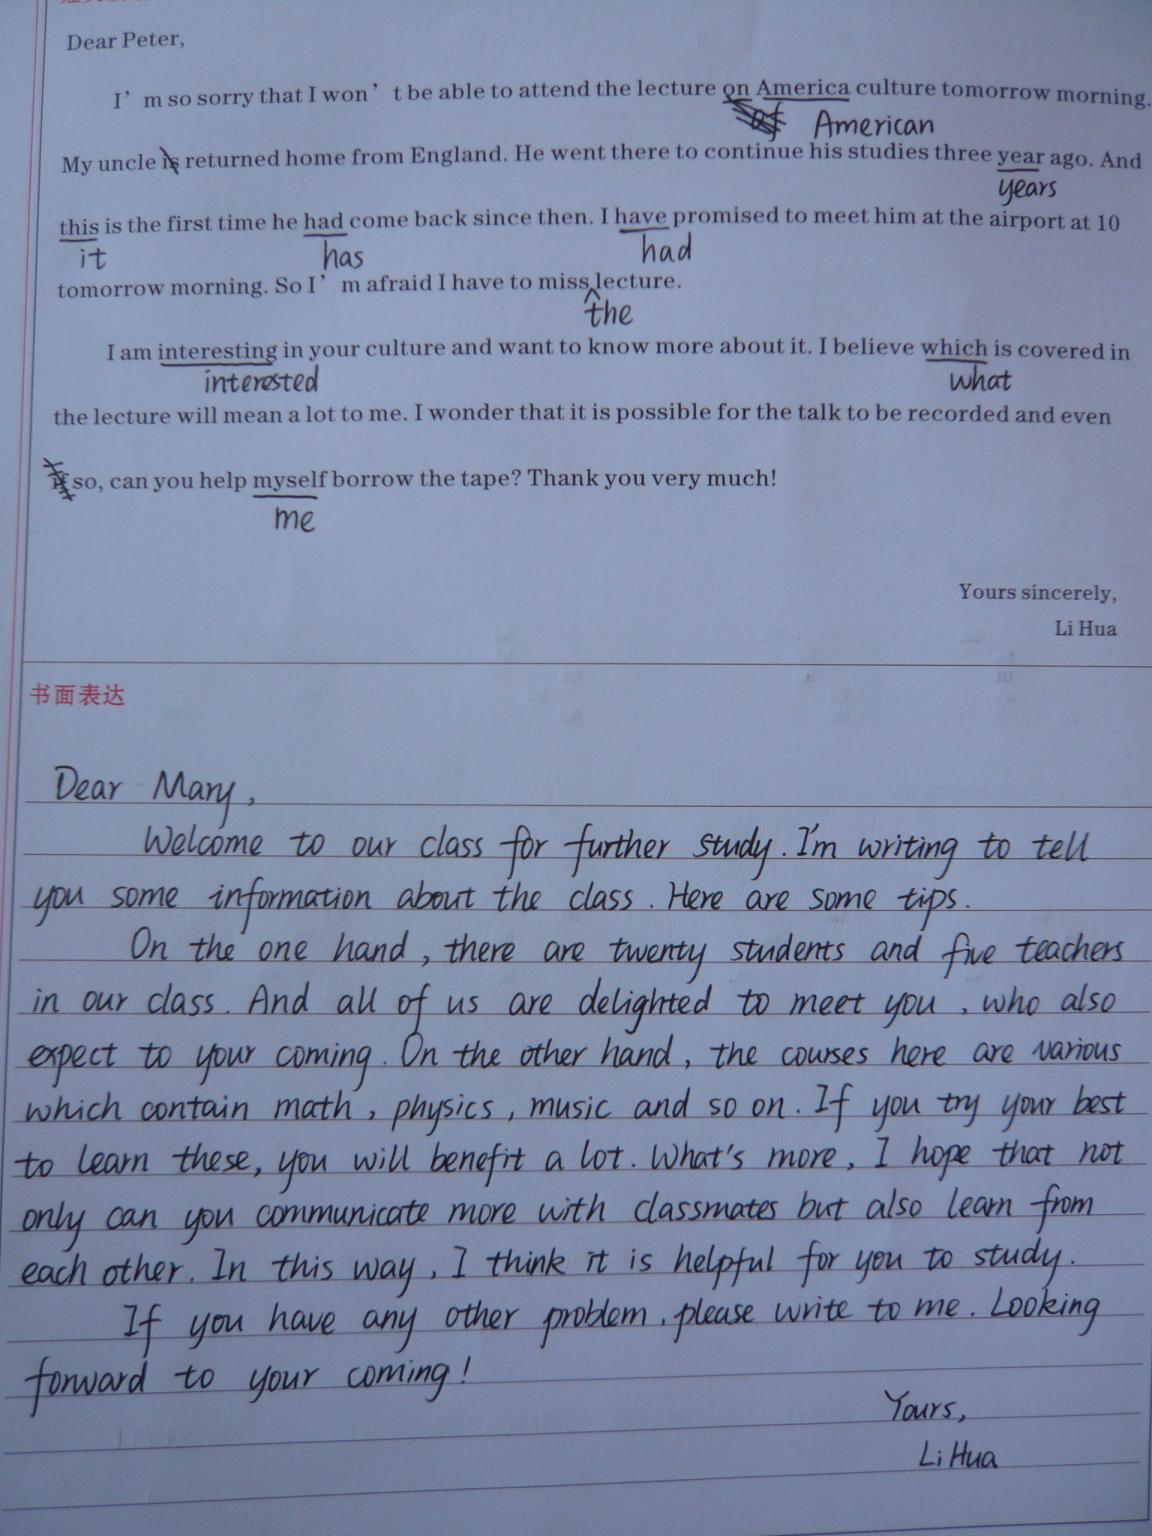 Dear Peter,
I'm so sorry that I won't be able to attend the lecture on America culture tomorrow morning.
of American
My uncle is returned home from England. He went there to continue his studies three year ago. And
years
this is the first time he had come back since then. I have promised to meet him at the airport at 10
it has had
tomorrow morning. So I'm afraid I have to miss lecture.
the
I am interesting in your culture and want to know more about it. I believe which is covered in
interested what
the lecture will mean a lot to me. I wonder that it is possible for the talk to be recorded and even
if so, can you help myself borrow the tape? Thank you very much!
me
Yours sincerely,
Li Hua
书面表达
Dear Mary,
Welcome to our class for further study. I'm writing to tell
you some information about the class. Here are some tips.
On the one hand, there are twenty students and five teachers
in our class. And all of us are delighted to meet you, who also
expect to your coming. On the other hand, the courses here are various
which contain math, physics, music and so on. If you try your best
to learn these, you will benefit a lot. What's more, I hope that not
only can you communicate more with classmates but also learn from
each other. In this way, I think it is helpful for you to study.
If you have any other problem, please write to me. Looking
forward to your coming!
Yours,
Li Hua